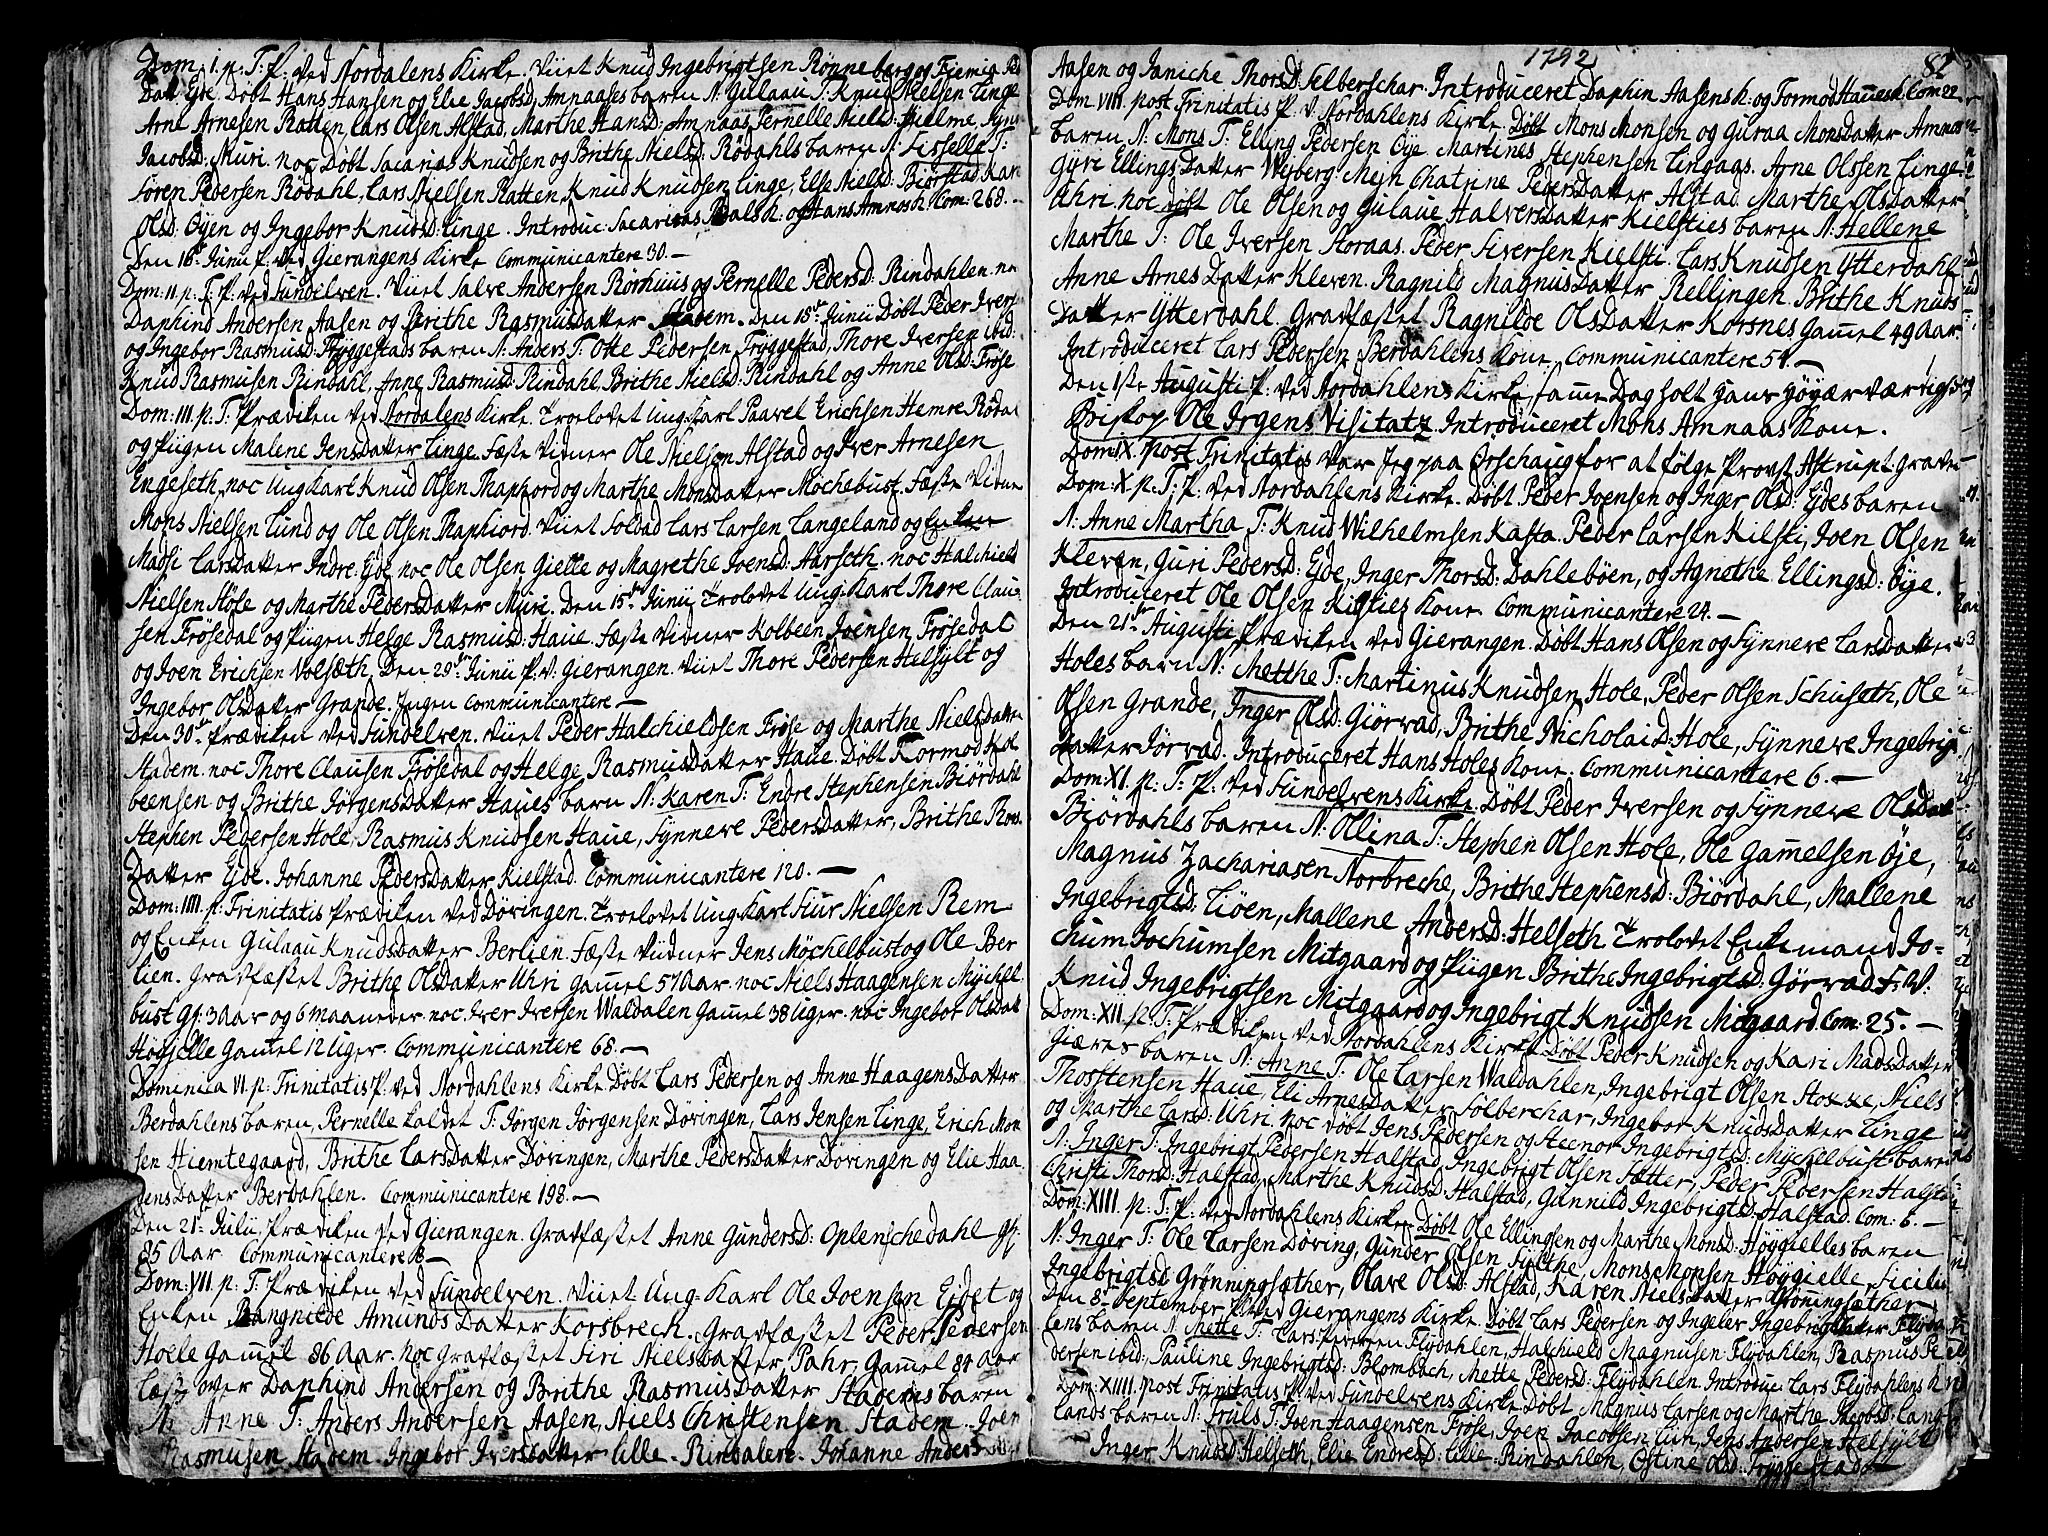 Dom: 1. p. T: P: ved Nordalens Kirke. Viiet Knud Ingebrigtsen Rönneberg og
Datt. Ejde. Döbt Hans Hansen og Elie Jacobsd: Amnaases baren N: Gulaau T: Knud Nielsen Linge
Arne Arnesen Ratten, Lars Olsen Alstad, Marthe Hansd: Amnaas Pernelle Nielsd: Hielme, Synn
Jacobsd: Muri. noc Döbt Sacarias Knudsen og Brithe Nielsd: Rödahls baren N: Sisselle T:
Sören Pedersen Rödahl, Lars Nielsen Ratten, Knud Knudsen Linge, Else Nielsd: Biörstad Kari
Olsd: Öyen og Ingebor Knudsd: Linge. Introduc: Sacarias Rdals K: og Hans Amnøs K: Com: 268. -
Den 16de Junii P: ved Gierangens Kirke Communicantere 30. -
Dom: II p: T: P: ved Sundelven. Viiet Salve Andersen Rörhuus og Pernelle Pedersd: Rindahlen. noc
Daphind Andersen Aasen og Brithe Rasmusdatter Stadem. Den 15de Junii Döbt Peder Ivers
og Ingebor Rasmusd: Tryggestads baren N: Anders T: Otte Pedersen Tryggestad, Thore Iversen ibid:
Knud Rasmusen Rindahl, Anne Rasmusd: Rindahl, Brithe Nielsd: Rindahl og Anne Olsd: Fröse
Dom: III. p: T: Prædiken ved Nordalens Kirke. Troelovet ung Karl Paavel Erichsen Hemre Rödal
og Piigen Malene Jensdatter Linge. Fæste Vidner Ole Nielsen Alstad og Iver Arnesen
Engeseth, noc ung Karl Knud Olsen Thaphord og Marthe Monsdatter Möchebust. Fæste Vidne
Mons Nielsen Lund og Ole Olsen Thaphiord. Viiet Soldad Lars Larsen Langeland og Enken
Madsi Larsdatter Indre Ejde noc Ole Olsen Gielle og Magrethe Joensd: Aarseth. noc Halchield
Nielsen Höse og Marthe Pedersdatter Muri. Den 15de Junii Trolovet ung Karl Thore Clau-
sen Frösedal og Piigen Helge Rasmusd: Haue. Fæste Vidner Kolbeen Joensen Frösedal
og Joen Erichsen Volsæth. Den 29de Junii P: V: Gierangen. Viiet Thore Pedersen Helsylt og
Ingebor Olsdatter Grande. Ingen Communicantere -
Den 30te Prædiken ved Sundelven. Viiet Peder Halchieldsen Fröse og Marthe Nielsdatter
Stadem. noc Thore Clausen Frösedal og Helge Rasmusdatter Haue. Döbt Tormod Kol
beensen og Brithe Jörgensdatter Haues barn N: Karen T: Endre Stephensen Biördahl
Stephen Pedersen Hole, Rasmus Knudsen Haue, Synneve Pedersdatter, Brithe Ras
Datter Ejde. Johanne Pedersdatter Kielstad. Communicantere 120. -
Dom: IIII. p: Trinitatis Prædiken ved Döringen. Troelovet ung Karl Siur Nielsen Rem
og Enken Gulaau Knudsdatter Berlien. Fæste Vidner Jens Möchelbust og Ole Ber
lien. Gravfæstet Brithe Olsdatter Uhri gamel 57 Aar. noc Niels Haagensen Mychel
bust Gl: 3 Aar og 6 maaneder noc Iver Iversen Waldalen Gamel 38 Uger. noc Ingebor Olsdatt
Höygielle Gamel 12 Uger. Communicantere 68. -
Dominica VI p: Trinitatis P: ved Nordahlens Kirke Döbt Lars Pedersen og Anne Haagensdatter
Berdahlens baren, Pernelle kaldet T: Jörgen Jörgensen Döringen, Lars Jensen Linge, Erich Mon
sen Hiemtegaard, Brithe Larsdatter Döringen, Marthe Pedersdatter Döringen og Elie Haa
gensdatter Berdahlen. Communicantere 198. -
Den 21de Julii, Prædiken ved Gierangen. Gravfæstet Anne Gundersd: Oplenschedahl Gl:
85 Aar Communicantere 18 -
Dom: VII. p: T: Prædiken ved Sundelven. Viiet ung Karl Ole Joensen Eidet og
Enken Rangnilde Amundsdatter Korsbrech. Gravfæstet Peder Pedersen
Hoele Gamel 86 Aar. noc gravfæstet Siri Nielsdatter, Pahr, Gamel 84 Aar
Læst over Daphind Andersen og Brithe Rasmusdatter Stadems baren
N: Anne T: Anders Andersen Aasen, Niels Christensen Stadem. Joen
Rasmusen Stadem. Ingebor Iversdatter Lille-Rindalen. Johanne Andersd
1792
82
Aasen og Janiche Thorsd: Selberschar. Introduceret Daphin Aasens K: og Tormod Haues K: Com 22
Dom: VIII. post Trinitatis P. V. Nordahlens Kirke. Döbt Mons Monsen og Guraa Monsdatter Amnøs
baren N: Mons T: Elling Pedersen Öye Martines Stephensen Lingaas. Arne Olssen Linge
Gyri Ellingsdatter Wiberg. Meyn Chatrine Pedersdatter Alstad. Marthe Olsdatter
Uhri. noc döbt Ole Olsen og Gulaue Halversdatter Kielsties baren N: Hellene
Marthe T: Ole Iversen Storaas. Peder Siversen Kielsti. Lars Knudsen Ytterdahl
Anne Arnesdatter Kleven. Ragnild Magnusdatter Rellingen. Brithe Knuds
Datter Ytterdahl. Gravfæstet Ragnilde Olsdatter Korsnes Gamel 49 Aar.
Introduceret Lars Pedersen Berdahlens Kone. Communicantere 54. -
Den 1ste Augusti P: ved Nordahlens Kirke samme Dag holt Hans Höyærværdighed
Biskop Ole Irgens Visitatz. Introduceret Mons Amnaas Kone.
Dom: IX. post Trinitatis var Jeg paa Örschaug for at fölge Provst Astrup t: graven
Dom: X p: T: P: ved Nordahlens Kirke. Döbt Peder Joensen og Inger Olsd: Ejdes baren
N: Anne Martha T: Knud Wilhelmsen Kasta. Peder Larsen Kilsti, Joen Olsen
Kleven, Guri Pedersd: Ejde, Inger Thorsd: Dahleböen, og Agnethe Ellingsd: Öye.
Introduceret Ole Olsen Kilsties Kone. Communicantere 24. -
Den 21de Augusti Prædiken ved Gierangen. Döbt Hans Olsen og Synneve Larsdatter
Holes barn N: Metthe T: Martinus Knudsen Hole, Peder Olsen Schuseth, Ole
Olsen Grande, Inger Olsd: Giörvad, Brithe Nicholaid: Hole, Synneve Ingebrigs
datter Jörvad. Introduceret Hans Holes Kone. Communicantere 6. -
Dom: XI. p: T: P: ved Sundelvens Kirke. Döbt Peder Iversen og Synneve Olsdatt
Biördahls baren N: Ollina T: Stephen Olsen Hole, Ole Gamelsen Öje,
Magnus Zachariasen Norbreche, Brithe Stephensd: Biördahl, Mallene
Ingebrigtsd: Liöen, Mallene Andersd: Helseth Trolovet Enkemand Jo-
chum Jochumsen Mitgaard og Piigen Brithe Ingebrigtsd: Gjörvad F: V:
Knud Ingebrigtsen Mitgaard og Ingebrigt Knudsen Mitgaard Com: 25. -
Dom: XII. p: T: Prædiken ved Nordahlens Kirke Döbt Peder Knudsen og Kari Madsdatter
Giæres baren N: Anne T: Ole Larsen Waldahlen, Ingebrigt Olsen Stoxxe, Niels
Thosstensen Haue, Eli Arnesdatter Sölberchar, Ingebor Knudsdatter Linge
og Marthe Larsd: Uhri. noc döbt Jens Pedersen og Steenor Ingebrigtsd: Mychelbust baren
N: Inger T: Ingebrigt Pedersen Halstad, Ingebrigt Olsen Sætter, Peder Pedersen Halsta
Christi Thorsd: Halstad, Marthe Knudsd: Halstad, Gunnild Ingebrigtsd: Halstad. Com: 6. -
Dom: XIII. p: T: P: ved Nordahlens Kirke Döbt Ole Ellingsen og Marthe Monsd: Höygielles baren
N: Inger T: Ole Larsen Döring, Gunder Olsen Sylthe, Mons Monsen Höygielle, Sicilie
Ingebrigtsd Grönningsæther, Olave Olsd: Alstad, Karen Nielsdatter Grönningsæther
Den 8de September P: ved Gierangens Kirke. Döbt Lars Pedersen og Ingeler Ingebrigtsdatter Flyda
lens baren N: Mette T: Lars Iversen Flydahlen, Halchield Magnusen Flydahlen, Rasmus Pe
dersen ibid: Pauline Ingebrigtsd: Blombach, Mette Pedersd: Flydahlen. Introduc: Lars Flydahlens K:
Dom: XIIII. post Trinitatis P: ved Sundelvens Kirke Döbt Magnus Larsen og Marthe Jacobsd: Lang
lands baren N: Truls T: Joen Haagensen Fröse, Joen Jacobsen Lun, Jens Andersen Helsylt
Inger Knudsd: Helseth, Elie Endresd: Lille-Rindahlen, Ostine Olsd: Tryggestad